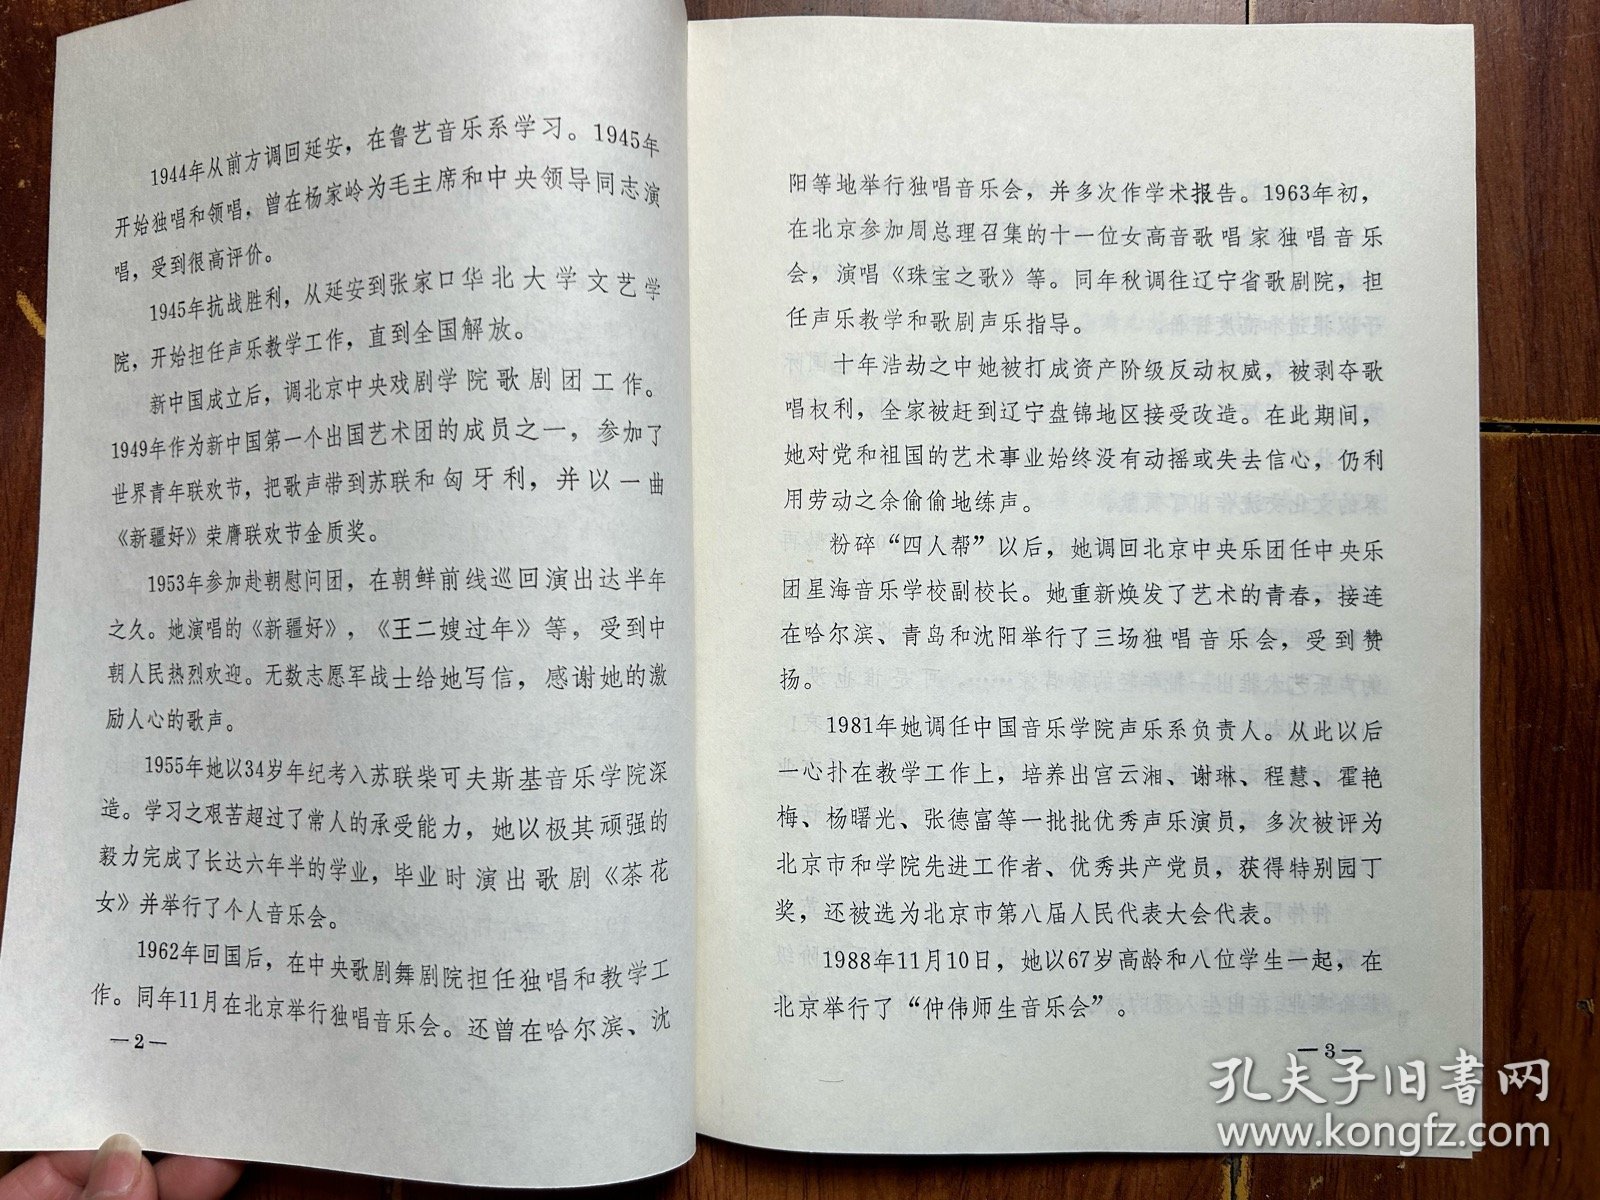 1944年从前方调回延安，在鲁艺音乐系学习。1945年
开始独唱和领唱，曾在杨家岭为毛主席和中央领导同志演
唱，受到很高评价。
1945年抗战胜利，从延安到张家口华北大学文艺学
院，开始担任声乐教学工作，直到全国解放。
新中国成立后，调北京中央戏剧学院歌剧团工作。
1949年作为新中国第一个出国艺术团的成员之一，参加了
世界青年联欢节，把歌声带到苏联和匈牙利，并以一曲
《新疆好》荣膺联欢节金质奖。
1953年参加赴朝慰问团，在朝鲜前线巡回演出达半年
之久。她演唱的《新疆好》，《王二嫂过年》等，受到中
朝人民热烈欢迎。无数志愿军战士给她写信，感谢她的激
励人心的歌声。
1955年她以34岁年纪考入苏联柴可夫斯基音乐学院深
造。学习之艰苦超过了常人的承受能力，她以极其顽强的
毅力完成了长达六年半的学业，毕业时演出歌剧《茶花
女》并举行了个人音乐会。
1962年回国后，在中央歌剧舞剧院担任独唱和教学工
作。同年11月在北京举行独唱音乐会。还曾在哈尔滨、沈
—2—
阳等地举行独唱音乐会，并多次作学术报告。1963年初，
在北京参加周总理召集的十一位女高音歌唱家独唱音乐
会，演唱《珠宝之歌》等。同年秋调往辽宁省歌剧院，担
任声乐教学和歌剧声乐指导。
十年浩劫之中她被打成资产阶级反动权威，被剥夺歌
唱权利，全家被赶到辽宁盘锦地区接受改造。在此期间，
她对党和祖国的艺术事业始终没有动摇或失去信心，仍利
用劳动之余偷偷地练声。
粉碎“四人帮”以后，她调回北京中央乐团任中央乐
团星海音乐学校副校长。她重新焕发了艺术的青春，接连
在哈尔滨、青岛和沈阳举行了三场独唱音乐会，受到赞
扬。
1981年她调任中国音乐学院声乐系负责人。从此以后
一心扑在教学工作上，培养出宫云湘、谢琳、程慧、霍艳
梅、杨曙光、张德富等一批批优秀声乐演员，多次被评为
北京市和学院先进工作者、优秀共产党员，获得特别园丁
奖，还被选为北京市第八届人民代表大会代表。
1988年11月10日，她以67岁高龄和八位学生一起，在
北京举行了“仲伟师生音乐会”。
—3—
孔夫子旧书网
www.kongfz.com